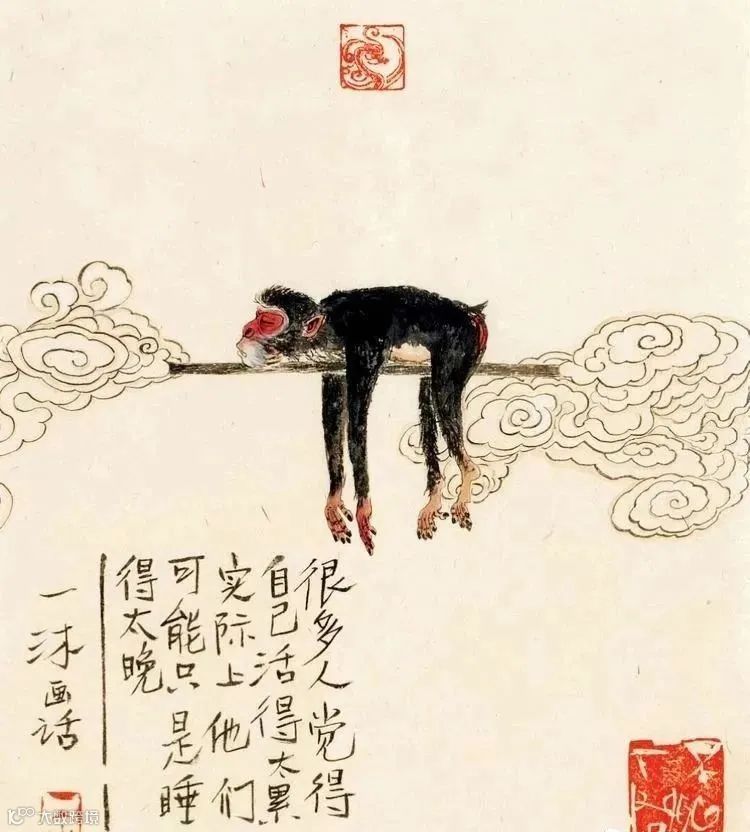 很多人觉得
自己活得太累
实际上他们
可能只是睡
得太晚
一沐画话
大数跨境